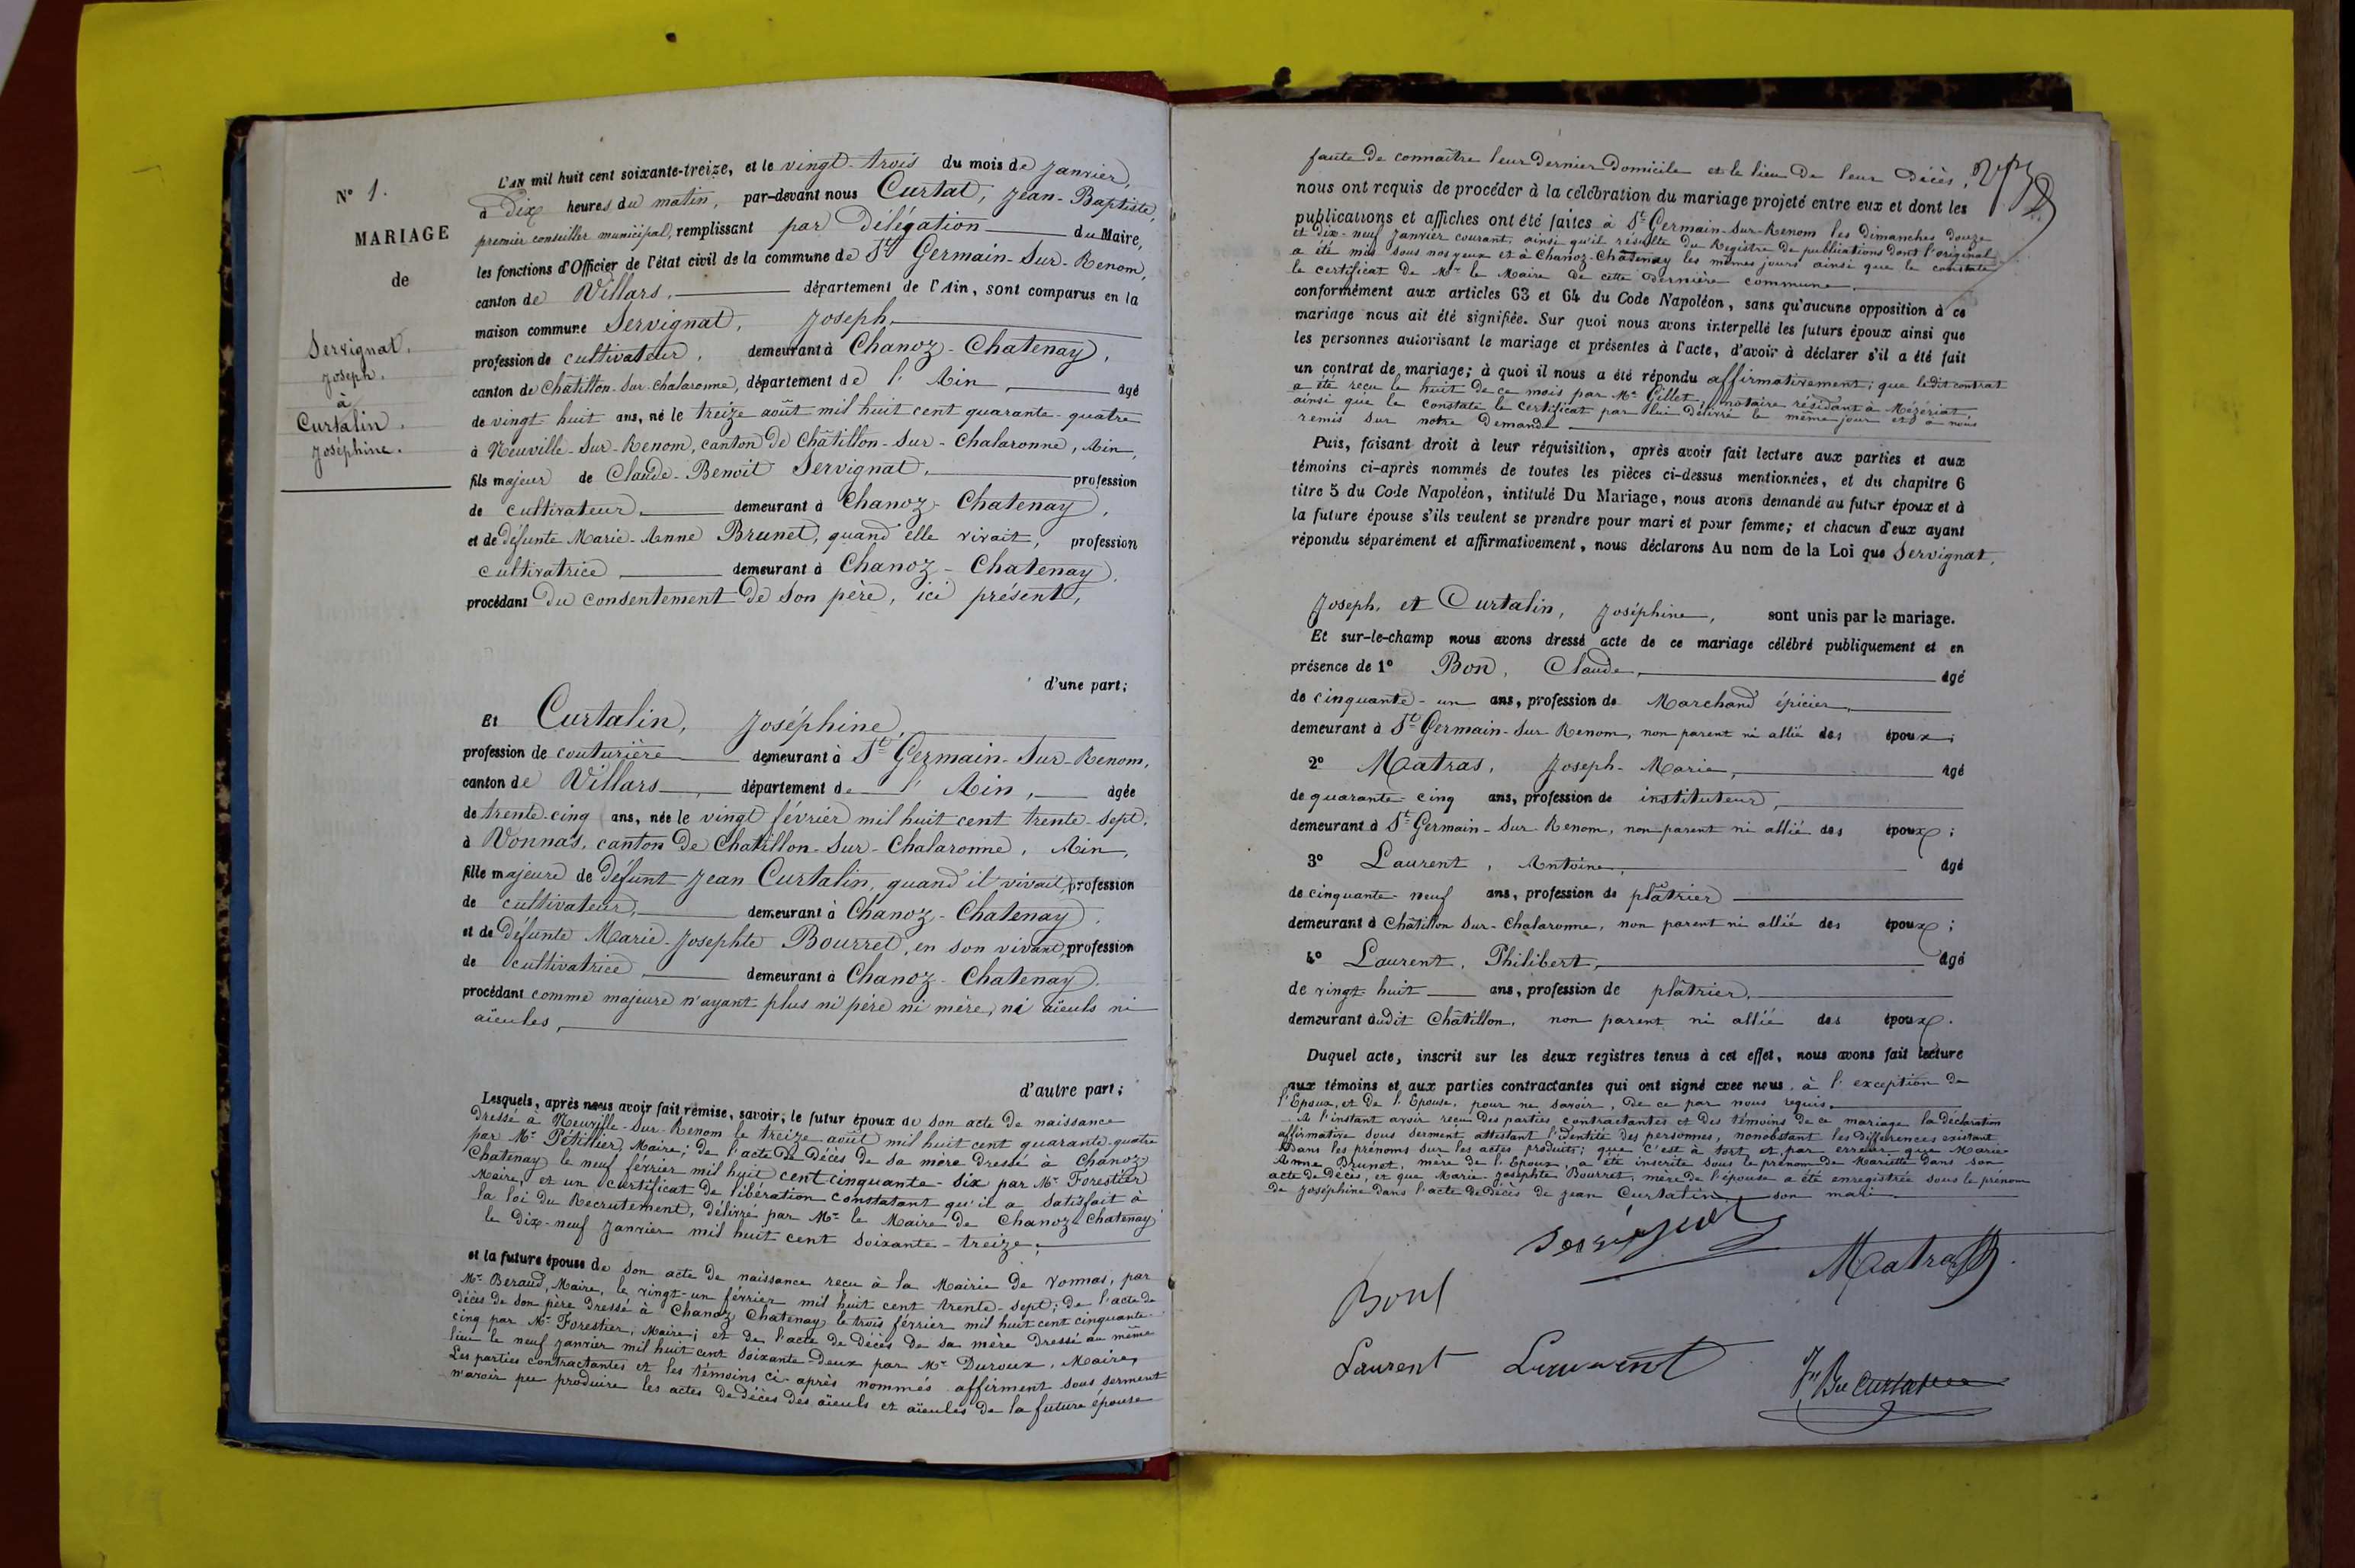 N° 1.
MARIAGE
de
Servignat.
Joseph.
à
Curtalin.
Joséphine.
L'AN mil huit cent soixante-treize, et le vingt-trois du mois de Janvier,
à Dix heures du matin, par-devant nous Curtat, Jean-Baptiste,
premier conseiller municipal, remplissant par Délégation du Maire,
les fonctions d'Officier de l'état civil de la commune de St Germain-Sur-Renom,
canton de Villars, département de l'Ain, sont comparus en la
maison commune Servignat, Joseph,
profession de cultivateur, demeurant à Chanoz-Chatenay,
canton de Châtillon-sur-chalaronne, département de l'Ain, âgé
de vingt huit ans, né le treize août mil huit cent quarante-quatre
à Neuville-Sur-Renom, canton de Châtillon-sur-Chalaronne, Ain,
fils majeur de Claude-Benoit Servignat, profession
de cultivateur demeurant à Chanoz-Chatenay,
et de défunte Marie-Anne Brunet, quand elle vivait, profession
cultivatrice demeurant à Chanoz-Chatenay,
procédant du consentement de son père, ici présent,
d'une part;
Et Curtalin, Joséphine,
profession de couturière demeurant à St Germain-Sur-Renom,
canton de Villars, département de l'Ain, âgée
de trente-cinq ans, née le vingt février mil huit cent trente-sept,
à Vonnas, canton de Chatillon-Sur-Chalaronne, Ain,
fille majeure de défunt Jean Curtalin, quand il vivait, profession
de cultivateur, demeurant à Chanoz-Chatenay,
et de Défunte Marie-Josephte Bourret, en son vivant, profession
de cultivatrice demeurant à Chanoz-Chatenay,
procédant comme majeure n'ayant plus ni père ni mère, ni aïeuls ni
aïeules,
d'autre part;
Lesquels, après nous avoir fait remise, savoir; le futur époux de son acte de naissance
dressé à Neuville-Sur-Renom le treize août mil huit cent quarante-quatre
par Mr Pétillier, Maire; de l'acte de décès de sa mère dressé à Chanoz-
Chatenay le neuf février mil huit cent cinquante-six par Mr Forestier
Maire, et un certificat de libération constatant qu'il a satisfait à
la loi du Recrutement, délivré par Mr le Maire de Chanoz-Chatenay
le dix-neuf Janvier mil huit cent soixante-treize;
et la future épouse de son acte de naissance reçu à la Mairie de Vonnas, par
Mr Beraud, Maire, le vingt-un février mil huit cent trente-sept; de l'acte de
décès de son père dressé à Chanoz Chatenay le trois février mil huit cent cinquante-
cinq par Mr Forestier, Maire; et de l'acte de décès de sa mère dressé au même
lieu le neuf Janvier mil huit cent soixante-deux par Mr Duroux, Maire,
Les parties contractantes et les témoins ci-après nommés affirment sous serment
n'avoir pu produire les actes de décès des aïeuls et aïeules de la future épouse
faute de connaître leur dernier domicile et le lieu de leur décès,
nous ont requis de procéder à la célébration du mariage projeté entre eux et dont les
publications et affiches ont été faites à St Germain-Sur-Renom les Dimanches douze
et dix-neuf Janvier courant, ainsi qu'il résulte du Registre de publications dont l'original
a été mis sous nos yeux et à Chanoz-Châtenay les mêmes jours ainsi que le constate
le certificat de Mr le Maire de cette dernière commune.
conformément aux articles 63 et 64 du Code Napoléon, sans qu'aucune opposition à ce
mariage nous ait été signifiée. Sur quoi nous avons interpellé les futurs époux ainsi que
les personnes autorisant le mariage et présentes à l'acte, d'avoir à déclarer s'il a été fait
un contrat de mariage; à quoi il nous a été répondu affirmativement; que ledit contrat
a été reçu le huit de ce mois par Me Gillet, notaire résidant à Mézériat,
ainsi que le constate le certificat par lui délivré le même jour et à nous
remis sur notre demande
Puis, faisant droit à leur réquisition, après avoir fait lecture aux parties et aux
témoins ci-après nommés de toutes les pièces ci-dessus mentionnées, et du chapitre 6
titre 5 du Code Napoléon, intitulé Du Mariage, nous avons demandé au futur époux et à
la future épouse s'ils veulent se prendre pour mari et pour femme; et chacun d'eux ayant
répondu séparément et affirmativement, nous déclarons Au nom de la Loi que Servignat,
Joseph, et Curtalin, Joséphine, sont unis par le mariage.
Et sur-le-champ nous avons dressé acte de ce mariage célébré publiquement et en
présence de 1° Bon, Claude, âgé
de cinquante-un ans, profession de Marchand épicier,
demeurant à St Germain-Sur-Renom, non parent ni allié des époux;
2° Matras, Joseph-Marie, âgé
de quarante-cinq ans, profession de instituteur,
demeurant à St Germain-Sur-Renom, non parent ni allié des époux;
3° Laurent, Antoine, âgé
de cinquante-neuf ans, profession de plâtrier
demeurant à Châtillon Sur-Chalaronne, non parent ni allié des époux;
4° Laurent, Philibert, âgé
de vingt-huit ans, profession de plâtrier,
demeurant audit Châtillon, non parent ni allié des époux.
Duquel acte, inscrit sur les deux registres tenus à cet effet, nous avons fait lecture
aux témoins et aux parties contractantes qui ont signé avec nous, à l'exception de
l'Epoux, et de l'Epouse, pour ne savoir, de ce par nous requis.
A l'instant avoir reçu des parties contractantes et des témoins de ce mariage la déclaration
affirmative sous serment attestant l'identité des personnes, nonobstant les différences existant
dans les prénoms sur les actes produits; que c'est à tort et par erreur que Marie-
Anne Brunet, mère de l'Epoux, a été inscrite sous le prénom de Mariette dans son
acte de décès, et que Marie-Josephte Bourret, mère de l'épouse a été enregistrée sous le prénom
de Joséphine dans l'acte de décès de Jean Curtalin son mari.
Servignat
Matras
Bon
Laurent Laurent
Jn Bte Curtat